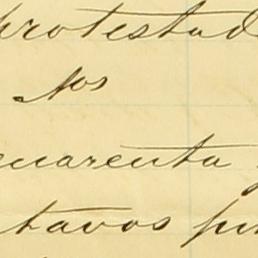 protestad
Nos
uarenta
tavos pu